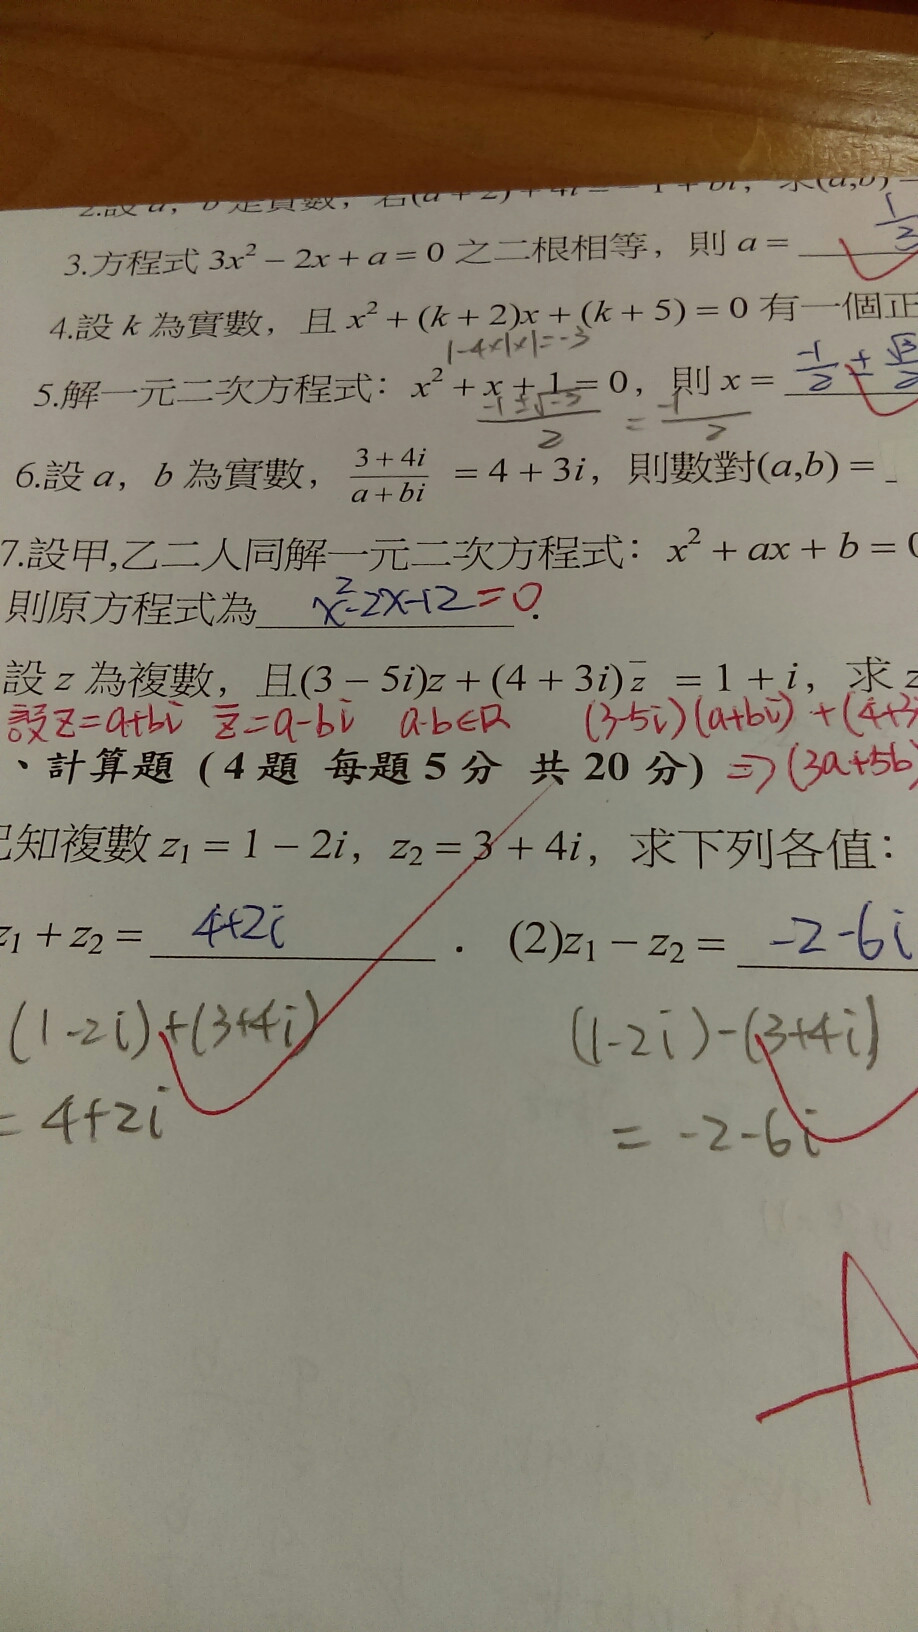 2.設 a，b 是實數，若(a + 2) + 4i = −1 + bi，求(a,b) =
3.方程式 3x² − 2x + a = 0 之二根相等，則 a = 1/3
4.設 k 為實數，且 x² + (k + 2)x + (k + 5) = 0 有一個正
1-4×1×1=-3
5.解一元二次方程式：x² + x + 1 = 0，則 x = -1/2 ± √3/2
-1±√-3/2 = -1/2
6.設 a，b 為實數，3 + 4i/a + bi = 4 + 3i，則數對(a,b) =
7.設甲,乙二人同解一元二次方程式：x² + ax + b = 0
則原方程式為 x²-2x-12=0.
設 z 為複數，且(3 − 5i)z + (4 + 3i)z̄ = 1 + i，求 z
設z=a+bi z̄=a-bi a.b∈R (3-5i)(a+bi)+(4+3i
、計算題 (4 題 每題 5 分 共 20 分) ⇒(3a+5b)
已知複數 z₁ = 1 − 2i，z₂ = 3 + 4i，求下列各值：
z₁ + z₂ = 4+2i . (2)z₁ − z₂ = -2-6i
(1-2i)+(3+4i) (1-2i)-(3+4i)
= 4+2i = -2-6i